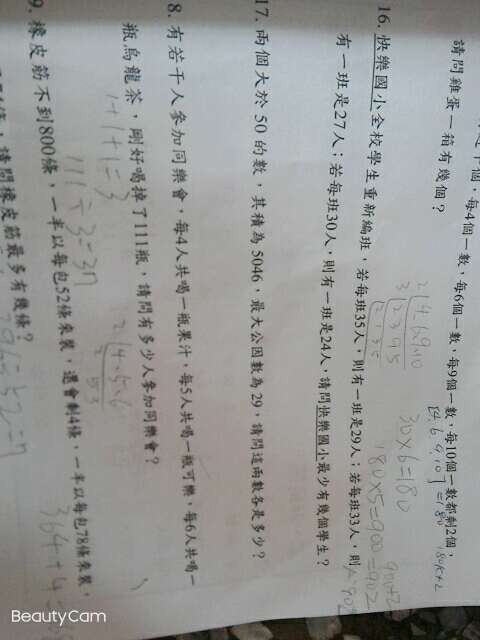 個，每4個一數，每6個一數，每9個一數，每10個一數都剩2個，
請問雞蛋一箱有幾個？
16. 快樂國小全校學生重新編班，若每班35人，則有一班是29人；若每班33人，則
有一班是27人；若每班30人，則有一班是24人，請問快樂國小最少有幾個學生？
17. 兩個大於50的數，其積為5046，最大公因數為29，請問這兩數各是多少？
8. 有若干人參加同樂會，每4人共喝一瓶果汁，每5人共喝一瓶可樂，每6人共喝一
瓶烏龍茶，剛好喝掉了111瓶，請問有多少人參加同樂會？
9. 橡皮筋不到800條，一半以每包52條來裝，還會剩4條，一半以每包78條來裝，
請問橡皮筋最多有幾條？
30×6=180
180×5=900
=902
1+1+1=3
111÷3=37
364+4
BeautyCam